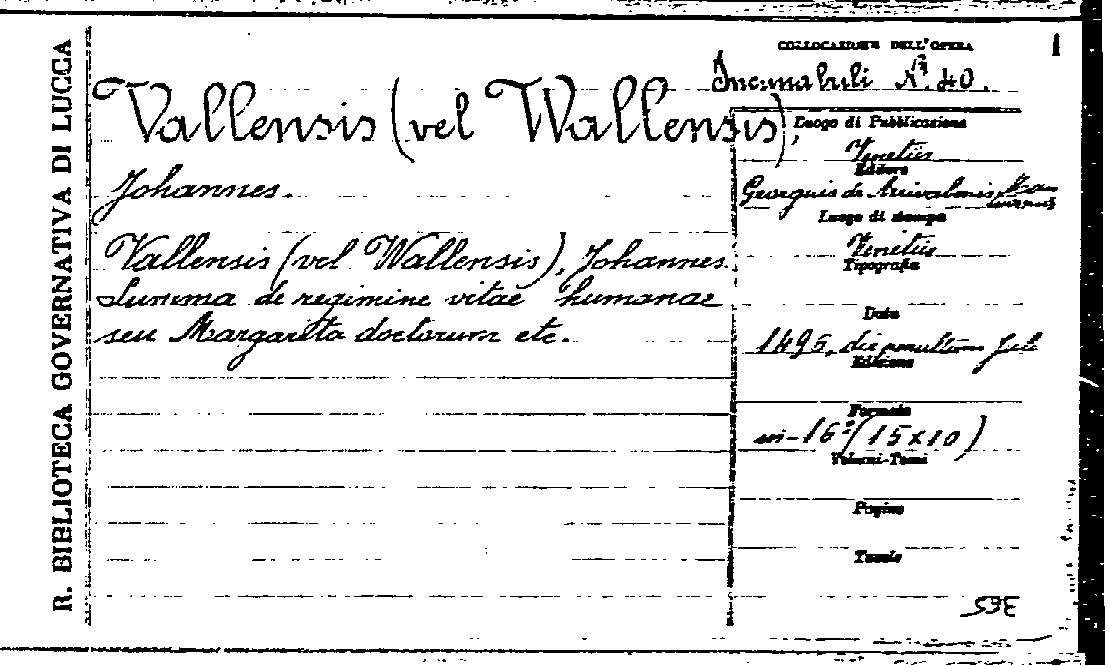 R. BIBLIOTECA GOVERNATIVA DI LUCCA
1
COLLOCAZIONE DELL'OPERA
Incunabuli N. 40.
Vallensis (vel Wallensis),
Johannes.
Vallensis (vel Wallensis), Johannes.
Summa de regimine vitae humanae
seu Margarita doctorum etc.
Luogo di Pubblicazione
Venetiis
Editore
Georgius de
Luogo di stampa
Venetiis
Tipografia
Data
1496, die penultima feb
Edizione
Formato
in-16° (15x10)
Volumi-Tomi
Pagine
Tavole